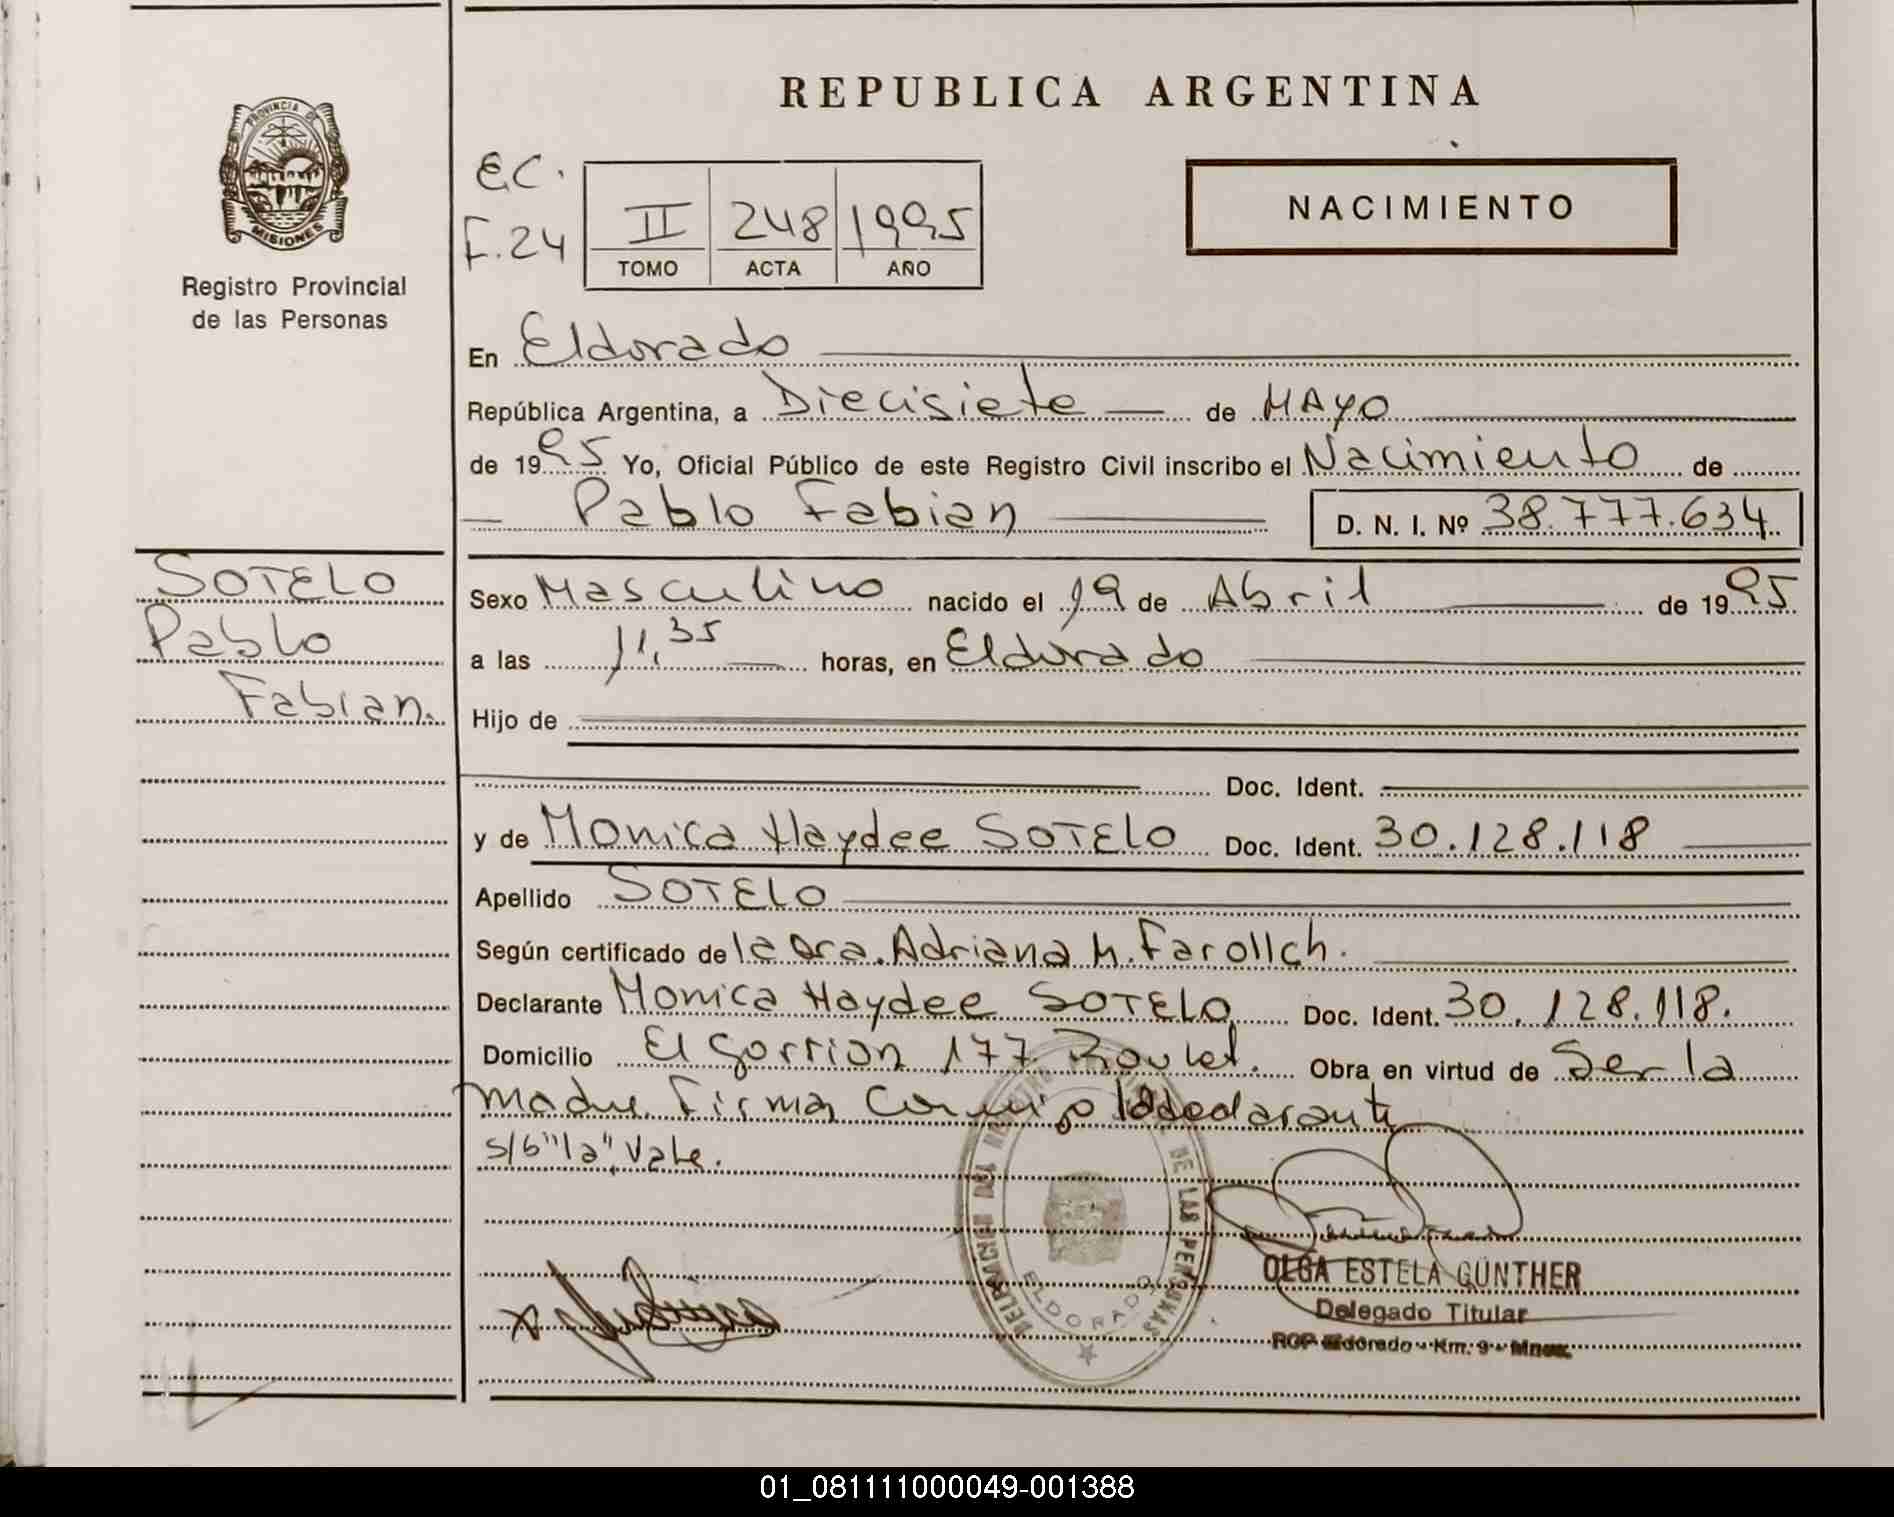 REPUBLICA ARGENTINA
PROVINCIA DE
MISIONES
Registro Provincial
de las Personas
E.C.
F.24
II 248 1995
TOMO ACTA AÑO
NACIMIENTO
En Eldorado
República Argentina, a Diecisiete de MAYO
de 1995 Yo, Oficial Público de este Registro Civil inscribo el Nacimiento de
Pablo Fabian D. N. I. Nº 38.777.634.
SOTELO
Pablo
Fabian.
Sexo Masculino nacido el 19 de Abril de 1995
a las 11,35 horas, en Eldorado
Hijo de
Doc. Ident.
y de Monica Haydee SOTELO Doc. Ident. 30.128.118
Apellido SOTELO
Según certificado de la Dra. Adriana M. Farollch.
Declarante Monica Haydee SOTELO Doc. Ident. 30.128.118.
Domicilio El Gorrion 177 Roulet. Obra en virtud de Ser la
madre. Firma Conmigo la declarante
s/b "la", Vale.
DE LAS PERSONAS
ELDORADO
OLGA ESTELA GÜNTHER
Delegado Titular
RGP Eldorado - Km. 9 - Mnes.
01_081111000049-001388